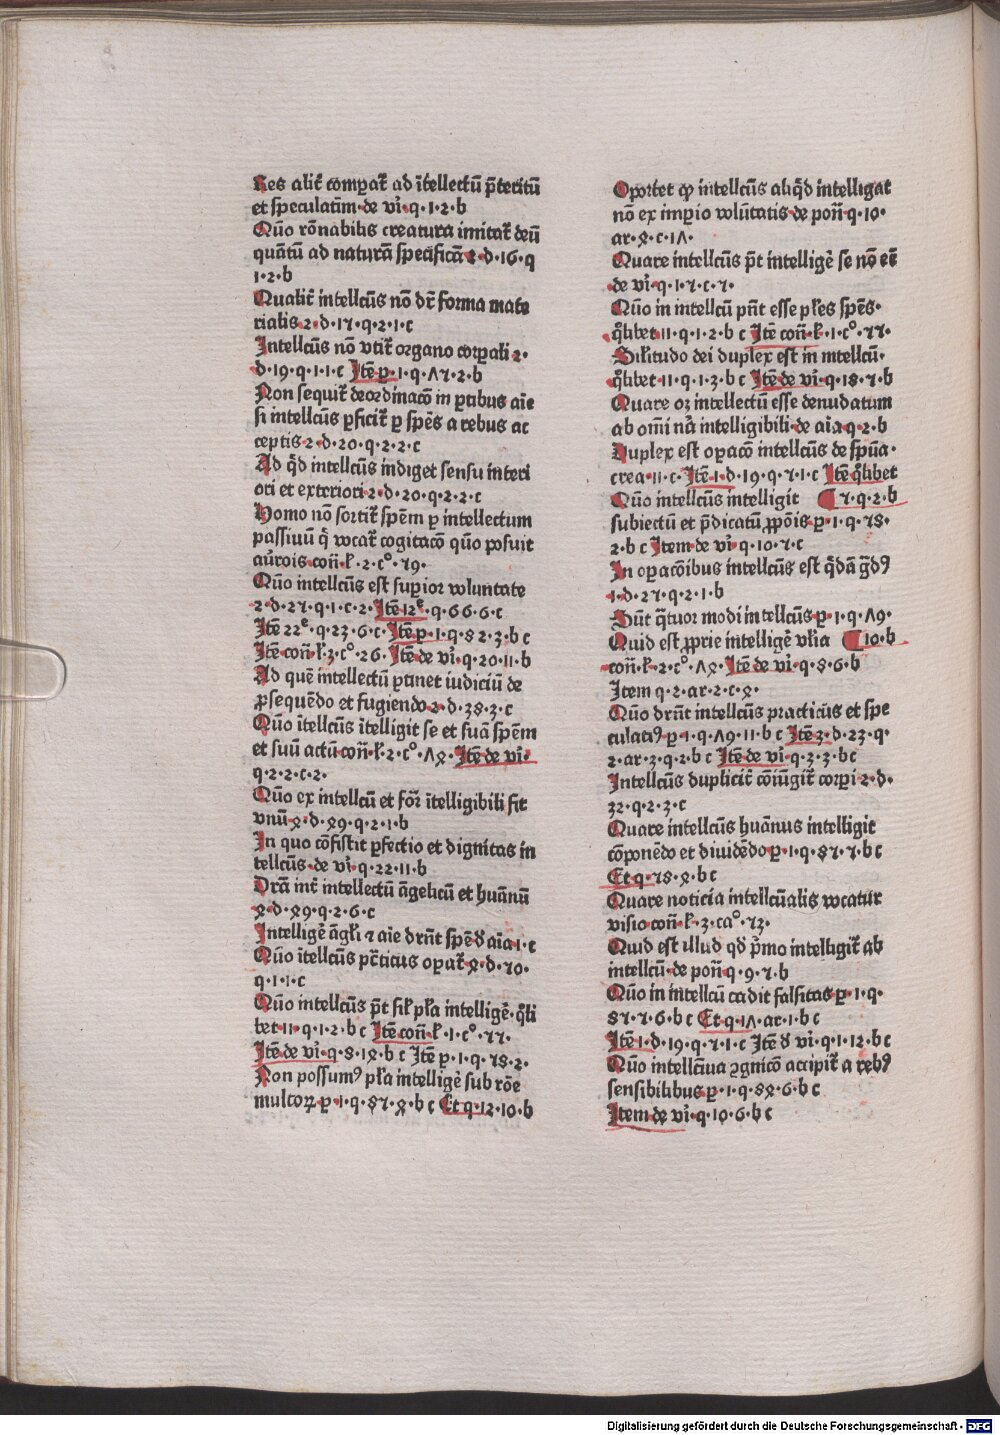 Res alit̃ compat̃ ad ĩtellectũ p̃teritũ
et speculatiũ·de vĩ·q·1·2·b
Quõ rõnabilis creatura imitat̃ deũ
quãtũ ad naturã specificã 2·d·16·q
1·2·b
Qualit̃ intellc̃us nõ dr̃ forma mate
rialis 2·d·17·q·2·1·c
Intellc̃us nõ vtit̃ organo corꝑali 2·
d·19·q·1·1·c Itẽ ꝑ·1·q·Λ7·2·b
Non sequit̃ deordinacõ in ꝑtibus aĩe
si intellc̃us ꝑficit̃ ꝑ spẽs a rebus ac
ceptis 2·d·20·q·2·2·c
Ad qͥd intellc̃us indiget sensu interi
ori et exteriori 2·d·20·q·2·2·c
Homo nõ sortit̃ spẽm ꝑ intellectum
passiuũ qͥ vocat̃ cogitacõ quõ posuit
aũrois con̄·ł·2·c°·79·
Quõ intellc̃us est suꝑior voluntate
2·d·27·q·1·c·2·Itẽ 12ͤ·q·66·6·c
Itẽ 22ͤ·q·23·6·c·Itẽ ꝑ·1·q·82·3·b c
Itẽ con̄·ł·3·c°·26·Itẽ de vĩ·q·20·11·b
Ad quẽ intellectũ ꝑtinet iudiciũ de
ꝓsequẽdo et fugiendo 2·d·38·3·c
Quõ ĩtellc̃us ĩtelligit se et suã spẽm
et suũ actũ con̄·ł·2·c°·Λꝝ·Itẽ de vĩ·
q·2·2·c·2·
Quõ ex intellc̃u et for̃ ĩtelligibili fit
vnũ ꝝ·d·ꝝ9·q·2·1·b
In quo cõsistit ꝑfectio et dignitas in
tellc̃us·de vĩ·q·22·11·b
Dr̃ã int̃ intellectũ ãgelicũ et huãnũ
ꝝ·d·ꝝ9·q·2·6·c
Intelligẽ ãgłi ⁊ aĩe drñt spẽ ꝺ aĩa·1·c
Quõ ĩtellc̃us pc̃ticus oꝑat̃ ꝝ·d·70·
q·1·1·c
Quõ intellc̃us p̃t sił pła intelligẽ·qͦli
bet·11·q·1·2·b c Itẽ con̄·ł·1·c°·77·
Itẽ de vĩ·q·8·1ꝝ·b c Itẽ ꝑ·1·q·78·2·
Non possumꝰ pła intelligẽ sub rõe
multoꝝ ꝑ·1·q·87·ꝝ·b c Et q·12·10·b
Oportet ꝙ intellc̃us aliqͥd intelligat
nõ ex imꝑio volũtatis·de pon̄·q·10·
ar·ꝝ·c·1Λ·
Quare intellc̃us p̃t intelligẽ se nõ eẽ
de vĩ·q·1·7·c·7·
Quõ in intellc̃u pn̄t esse płes spẽs·
qͦlibet·11·q·1·2·b c Itẽ con̄·ł·1·c°·77·
Siłitudo dei duplex est in intellc̃u·
qͦlibet·11·q·1·3·b c Itẽ de vĩ·q·18·7·b
Quare oꝫ intellectũ esse denudatum
ab om̃i nã intelligibili·de aĩa q·2·b
Duplex est oꝑacõ intellc̃us de spũa·
crea·11·c·Itẽ 1·d·19·q·7·1·c Itẽ qͦlibet
Quõ intellc̃us intelligit ¶ 7·q·2·b
subiectũ et p̃dicatũ ꝓpõis ꝑ·1·q·78·
2·b c Item de vĩ·q·10·7·c
In oꝑacõibus intellc̃us est qͥdã gͣdꝰ
1·d·27·q·2·1·b
Sũt qͣtuor modi intellc̃us ꝑ·1·q·Λ9·
Quid est ꝓprie intelligẽ vłia ¶ 10·b
con̄·ł·2·c°·Λꝝ·Itẽ de vĩ·q·8·6·b
Item q·2·ar·2·c·ꝝ·
Quõ drñt intellc̃us practicus et spe
culatiꝰ ꝑ·1·q·Λ9·11·b c Itẽ 3·d·23·q·
2·ar·3·q·2·b c Itẽ de vĩ·q·3·3·b c
Intellc̃us duplicit̃ cõiũgit̃ corꝑi 2·d·
32·q·2·3·c
Quare intellc̃us huãnus intelligit
cõponẽdo et diuidẽdo ꝑ·1·q·87·7·b c
Et q·78·ꝝ·b c
Quare noticia intellc̃ualis vocatur
visio con̄·ł·3·ca°·73·
Quid est illud qd p̃mo intelligit̃ ab
intellc̃u·de pon̄·q·9·7·b
Quõ in intellc̃u cadit falsitas ꝑ·1·q·
87·7·6·b c Et q·1Λ·ar·1·b c
Itẽ 1·d·19·q·7·1·c Itẽ ꝺ vĩ·q·1·12·b c
Quõ intellc̃iua ꝯgnicõ accipit̃ a rebꝰ
sensibilibus ꝑ·1·q·8ꝝ·6·b c
Item de vĩ·q·10·6·b c
Digitalisierung gefördert durch die Deutsche Forschungsgemeinschaft - DFG